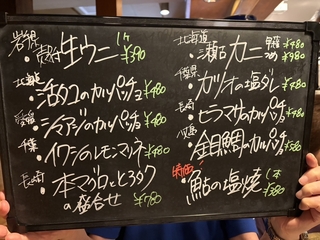 岩現 殻付 生ウニ 1ケ ¥390
北海道
・活タコのカルパッチョ ¥480
愛媛
・シマアジのカルパッチョ ¥480
千葉
・イワシのレモンマリネ ¥480
長崎
・本マグロととろタク
の盛合せ ¥780
北海道
・瀬呂カニ ¥480
¥980
千葉県
・カツオの塩ダレ ¥480
長崎
・ヒラマサのカルパッチョ ¥480
・金目鯛のカルパッチョ ¥580
・鮎の塩焼 1本 ¥580